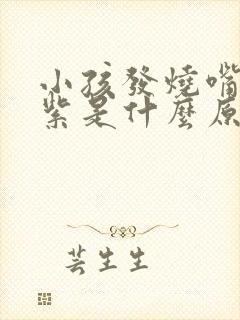 小孩發燒嘴
紫是什麼原
芸生生